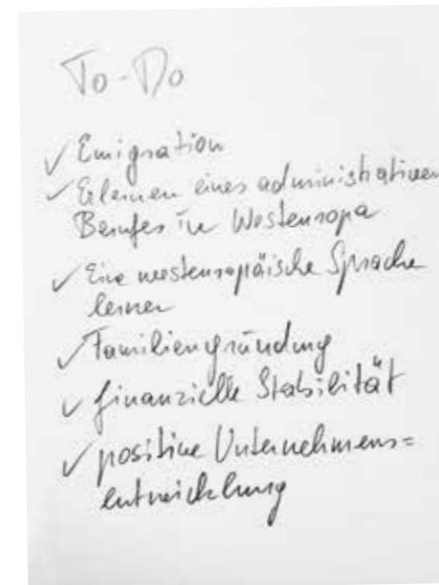 To-Do
✓ Emigration
✓ Erlernen eines administrativen
Berufes in Westeuropa
✓ Eine westeuropäische Sprache
lernen
✓ Familiengründung
✓ finanzielle Stabilität
✓ positive Unternehmens=
entwicklung